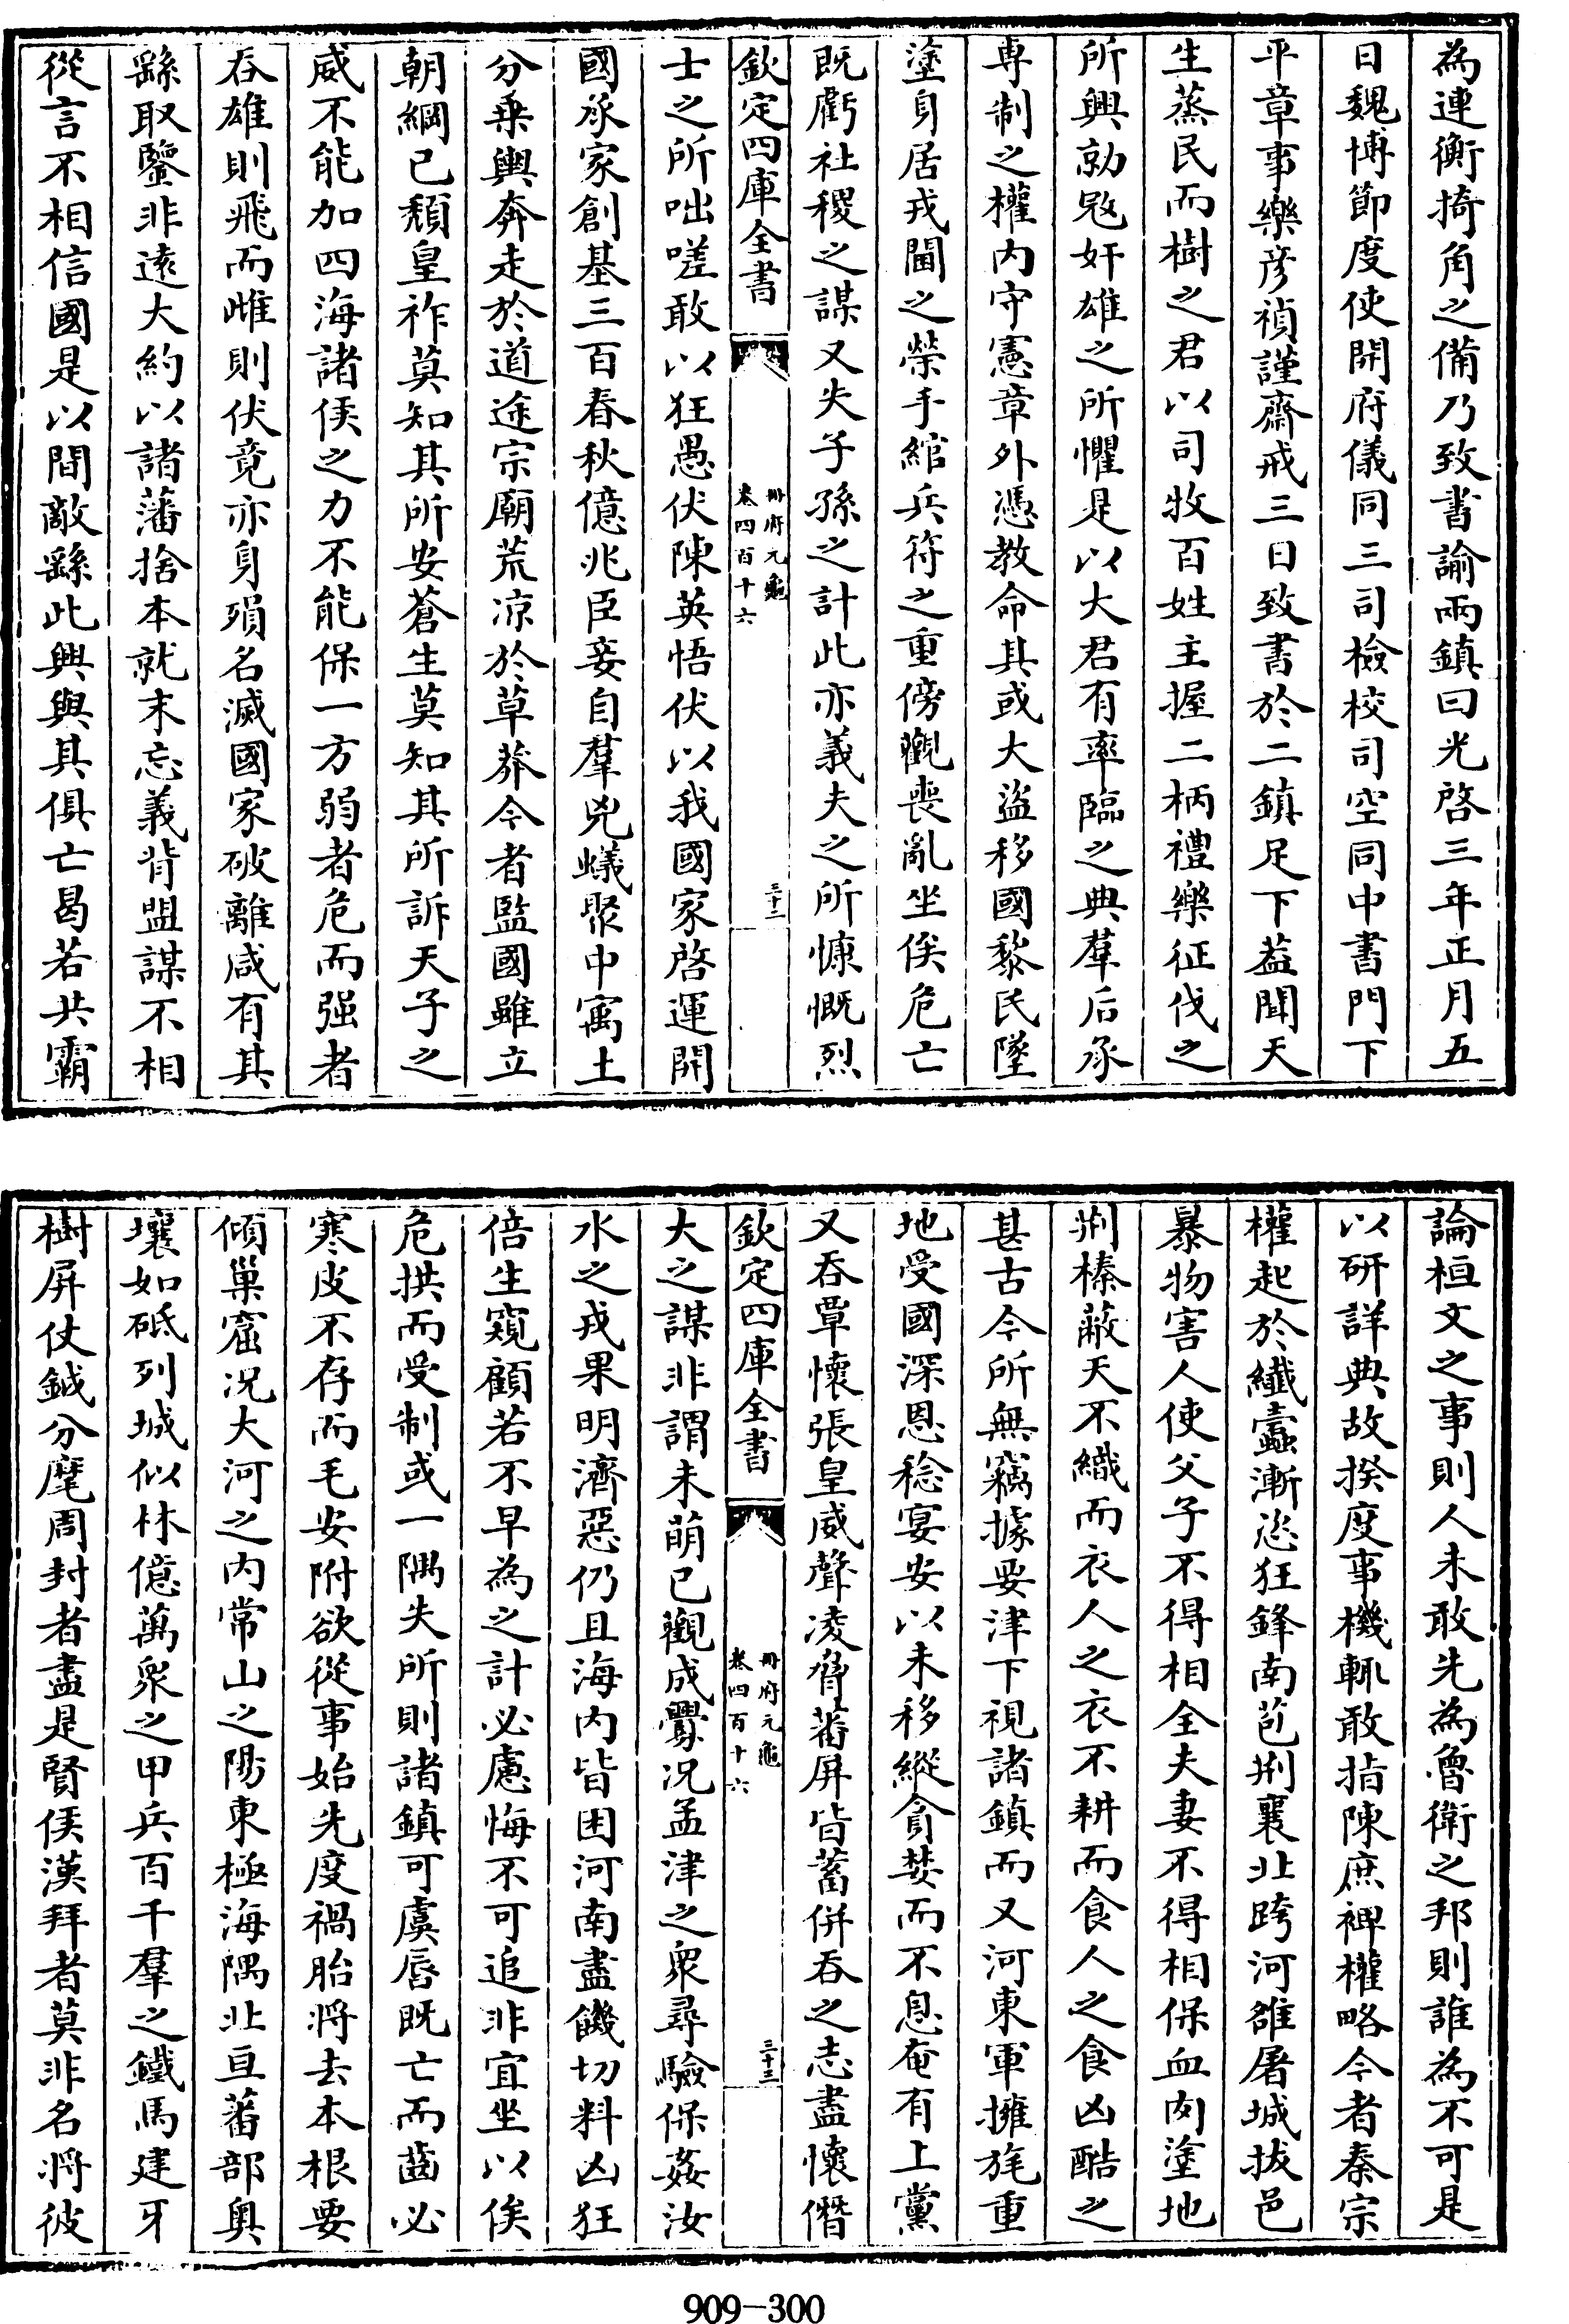 為連衡掎角之備乃致書諭兩鎮曰光啓三年正月五
日魏博節度使開府儀同三司檢校司空同中書門下
平章事樂彥禎謹齋戒三日致書於二鎮足下蓋聞天
生蒸民而樹之君以司牧百姓主握二柄禮樂征伐之
所興勍寇奸雄之所懼是以大君有率臨之典羣后承
專制之權內守憲章外憑教命其或大盜移國黎民墜
塗身居戎閫之榮手綰兵符之重傍觀喪亂坐俟危亡
既虧社稷之謀又失子孫之計此亦義夫之所慷慨烈
欽定四庫全書
冊府元龜
卷四百十六
三十二
士之所咄嗟敢以狂愚伏陳英悟伏以我國家啓運開
國承家創基三百春秋億兆臣妾自羣兇蟻聚中寓土
分乘輿奔走於道途宗廟荒涼於草莽今者監國雖立
朝綱已頽皇祚莫知其所安蒼生莫知其所訴天子之
威不能加四海諸侯之力不能保一方弱者危而强者
吞雄則飛而雌則伏竟亦身殞名滅國家破離咸有其
繇取鑒非遠大約以諸藩捨本就末忘義背盟謀不相
從言不相信國是以間敵繇此興與其俱亡曷若共霸
論桓文之事則人未敢先為魯衛之邦則誰為不可是
以研詳典故揆度事機輒敢指陳庶裨權略今者秦宗
權起於纖蠹漸恣狂鋒南苞荆襄北跨河雒屠城拔邑
暴物害人使父子不得相全夫妻不得相保血肉塗地
荆榛蔽天不織而衣人之衣不耕而食人之食凶酷之
甚古今所無竊據要津下視諸鎮而又河東軍擁旄重
地受國深恩稔宴安以未移縱貪婪而不息奄有上黨
又吞覃懷張皇威聲凌脅蕃屏皆蓄併吞之志盡懷僭
欽定四庫全書
冊府元龜
卷四百十六
三十三
大之謀非謂未萌已觀成釁况孟津之衆尋驗保姦汝
水之戎果明濟惡仍且海内皆困河南盡饑切料凶狂
倍生窺顧若不早為之計必慮悔不可追非宜坐以俟
危拱而受制或一隅失所則諸鎮可虞唇既亡而齒必
寒皮不存而毛安附欲從事始先度禍胎將去本根要
傾巢窟况大河之内常山之陽東極海隅北亘蕃部奥
壤如砥列城似林億萬衆之甲兵百千羣之鐵馬建牙
樹屏仗鉞分麾周封者盡是賢侯漢拜者莫非名將彼
909-300